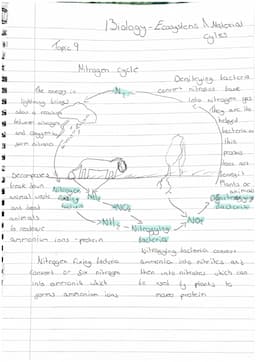 Biology - Ecosystems & Material
cycles
Topic 9
Nitrogen Cycle
Denitrifying bacteria
The energy in
lightning brings
about a reaction
between nitrogen
and oxygen to
form nitrates
N₂
convert nitrates back
into nitrogen gas
They are
bacteria so
this
process
does not
benefit
Plants or
animals
Decomposers
break down
animal waste
and dead
animals
to release
ammonium ions - protein
Nitrogen
fixing
bacteria
NH₃
NO₂
NH₄
Nitrifying
bacteria
NO₃
Denitrifying
bacteria
Nitrogen fixing bacteria
convert or fix nitrogen
into ammonia which
forms ammonium ions
Nitrifying bacteria convert
ammonia into nitrites and
then into nitrates which can
be used by plants to
make protein